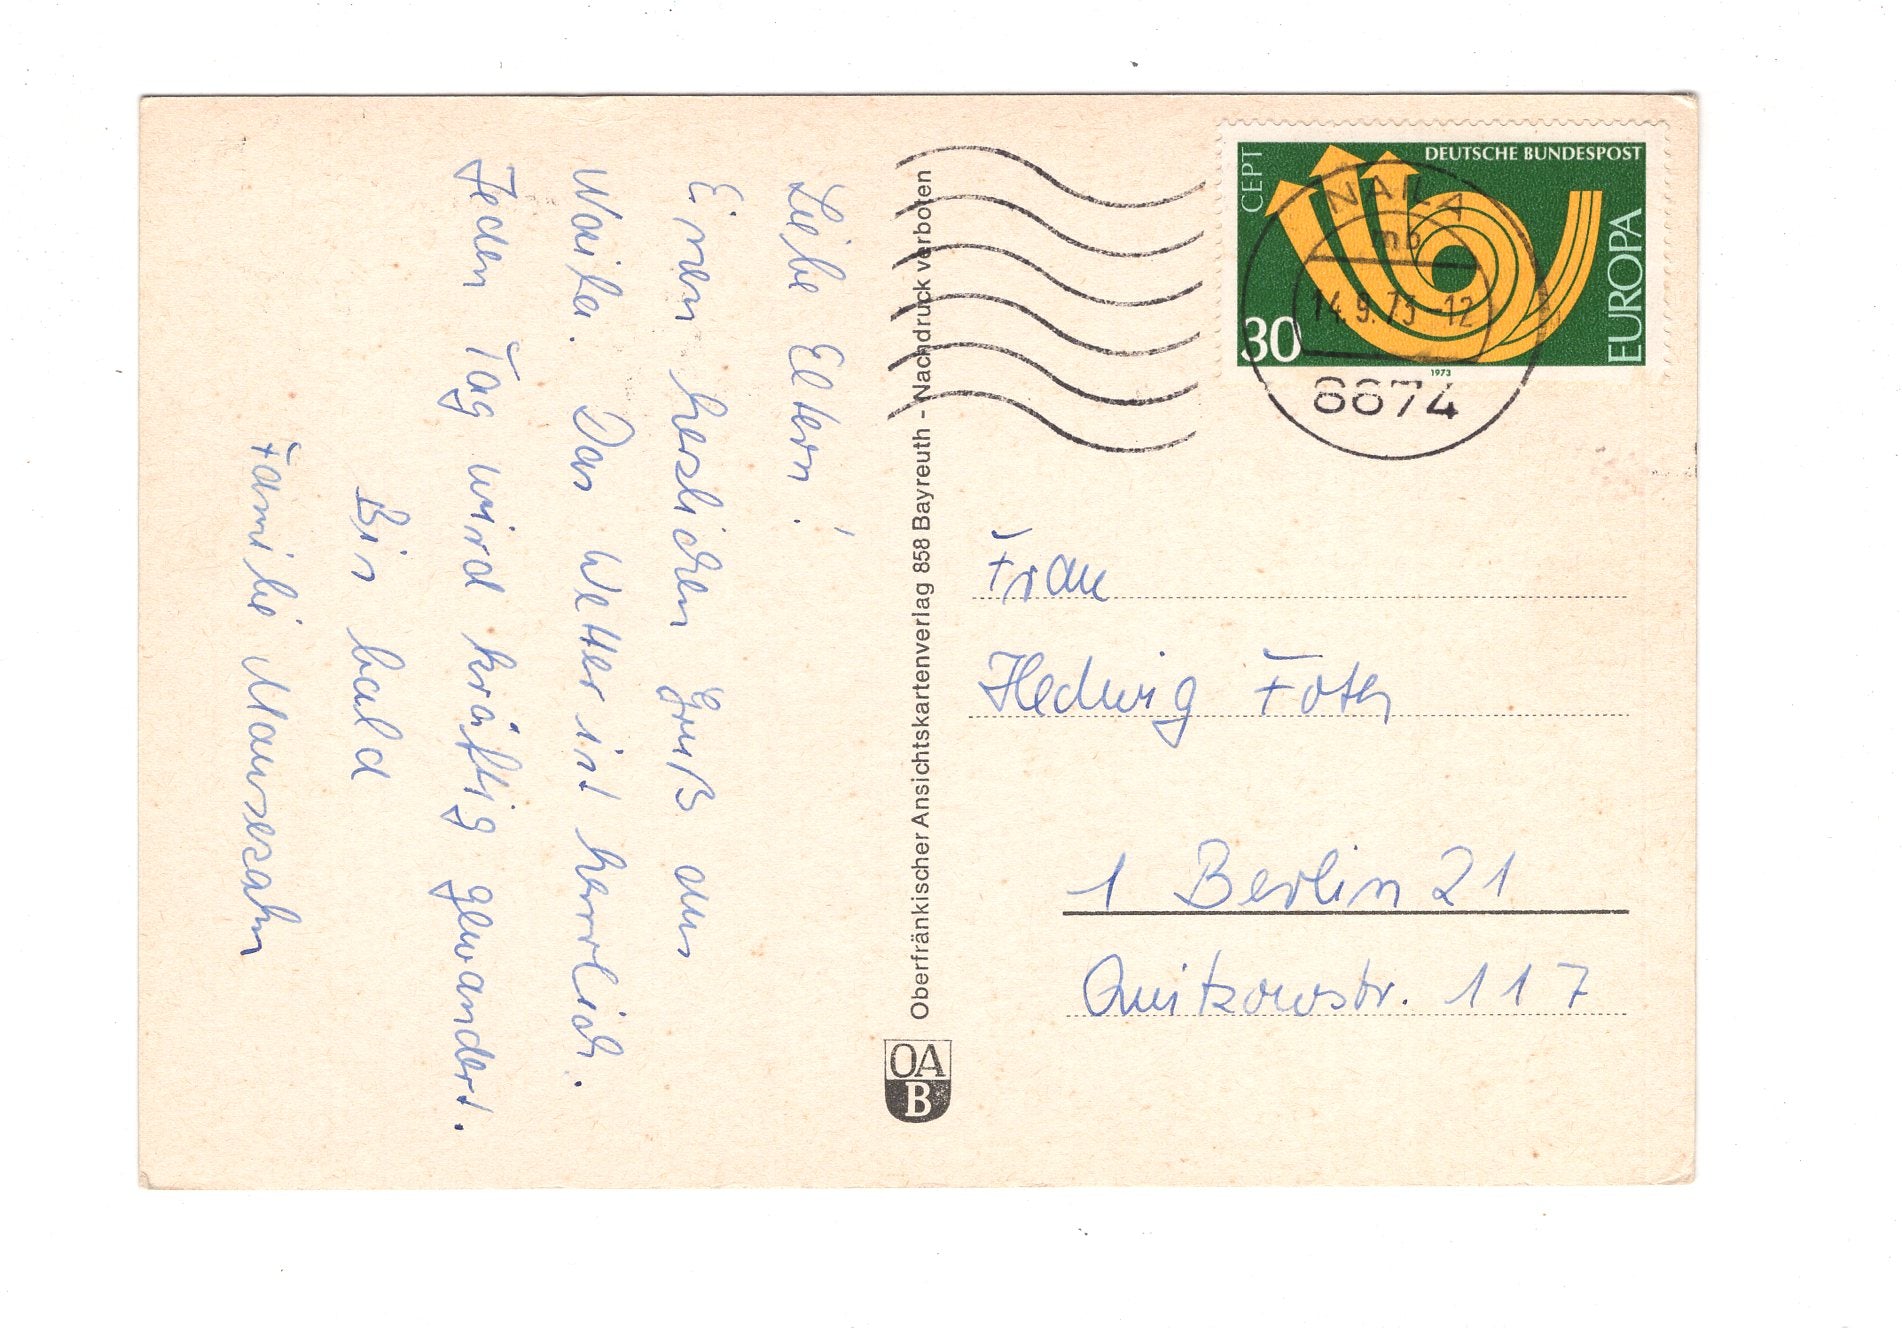 Liebe Eltern!
Einen herzlichen Gruß aus
Naila. Das Wetter ist herrlich.
Jeden Tag wird kräftig gewandert.
Bis bald
Familie Mausezahn
Oberfränkischer Ansichtskartenverlag 858 Bayreuth - Nachdruck verboten
OA
B
CEPT
DEUTSCHE BUNDESPOST
EUROPA
30
1973
NAILA
mb
14.9.73-12
8674
Frau
Hedwig Foth
1 Berlin 21
Quitzowstr. 117